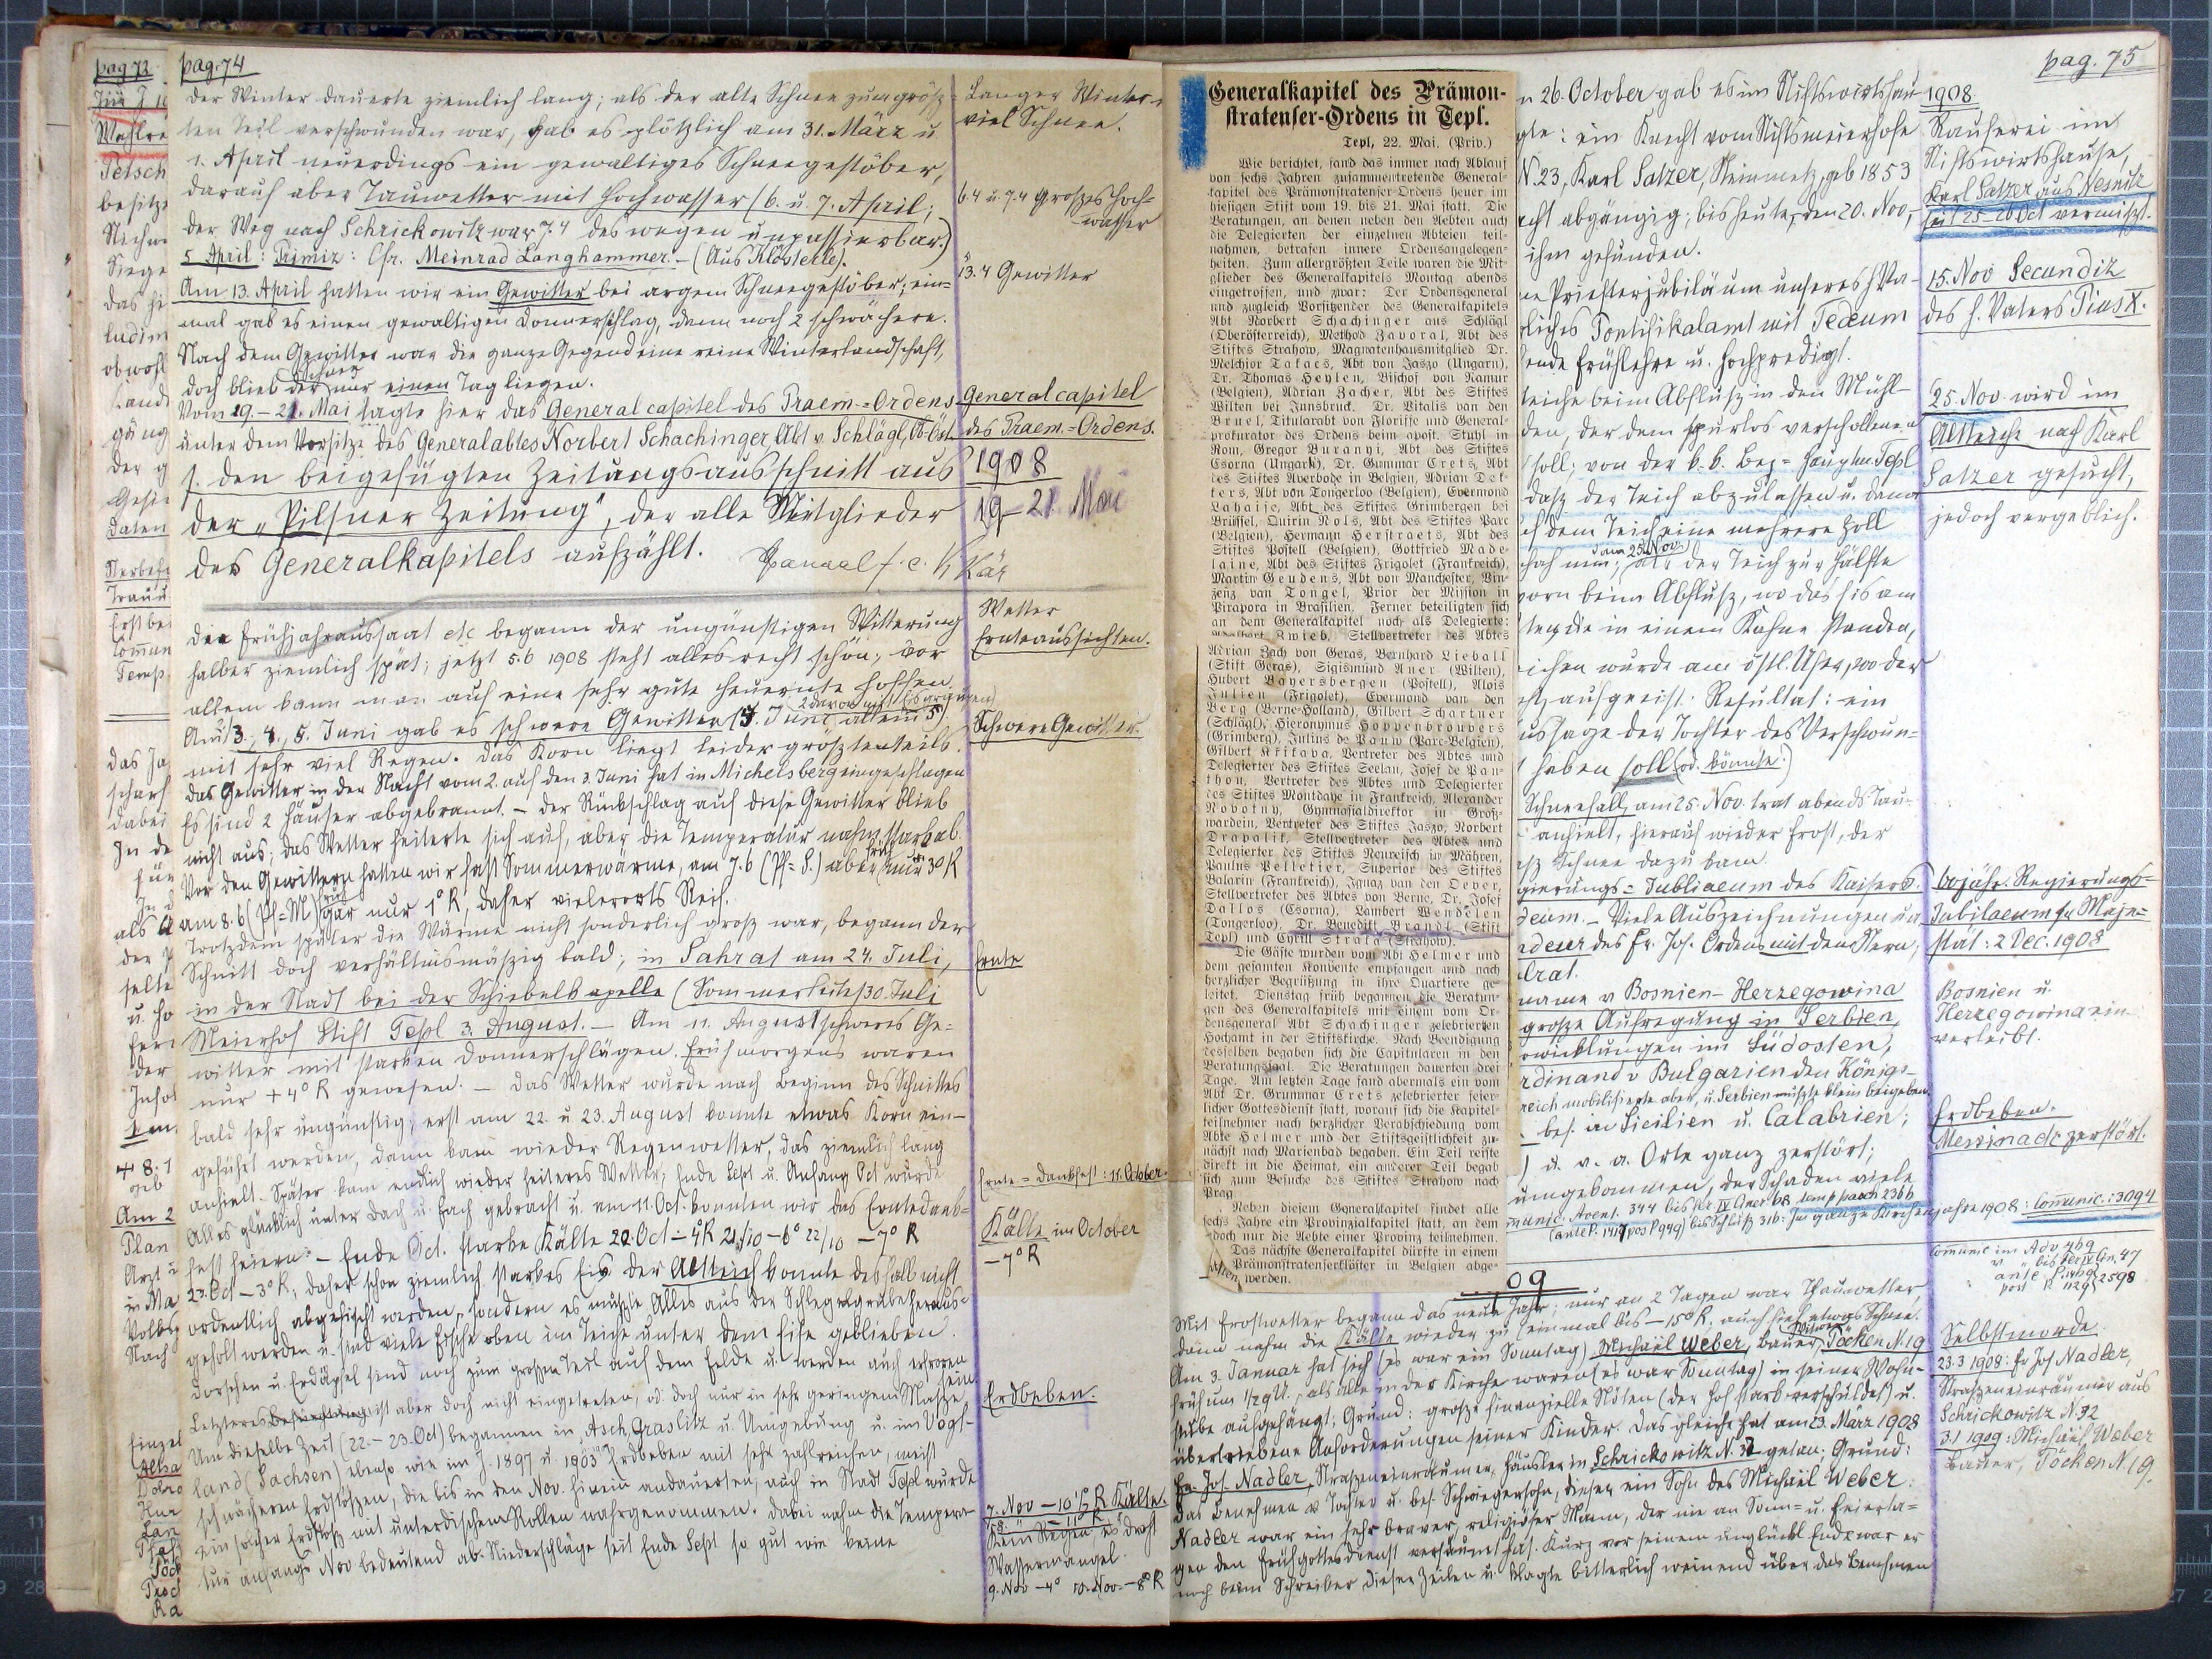 pag. 74
der Winter dauerte ziemlich lang; als der alte Schnee zum größ-
ten Teil verschwunden war, gab es plötzlich am 31. März u
1. April neuerdings ein gewaltiges Schneegestöber,
darauf aber Tauwetter mit Hochwasser (6. u. 7. April;
der Weg nach Schrickowitz war 7.4 deswegen unpassierbar.)
5 April: Primiz: Chr. Meinrad Langhammer. – (Aus Klösterle).
Am 13. April hatten wir ein Gewitter bei argem Schneegestöber; ein-
mal gab es einen gewaltigen Donnerschlag, dann noch 2 schwächere.
Nach dem Gewitter war die ganze Gegend eine reine Winterlandschaft,
doch blieb der Schnee nur einen Tag liegen.
Vom 19. – 21. Mai tagte hier das Generalcapitel des Praem.-Ordens
unter dem Vorsitze des Generalabtes Norbert Schachinger, Abt v. Schlägl, Ob-Öst.
s. den beigefügten Zeitungsausschnitt aus
der „Pilsner Zeitung", der alle Mitglieder
des Generalkapitels aufzählt.
Langer Winter
viel Schnee.
6.4 u. 7.4 großes Hoch-
wasser
13.4 Gewitter
Generalcapitel
des Praem.-Ordens.
1908
19–21 Mai
die Frühjahraussaat etc begann der ungünstigen Witterung
halber ziemlich spät; jetzt 5.6 1908 steht alles recht schön; vor
allem kann man auch eine sehr gute Heuernte hoffen
Am 2/3., 4., 5. Juni gab es schwere Gewitter (4. Juni allein 5)
mit sehr viel Regen. Das Korn liegt leider größtenteils.
Das Gewitter in der Nacht vom 2. auf den 3. Juni hat in Michelsberg eingeschlagen
Es sind 2 Häuser abgebrannt. – Der Rückschlag auf diese Gewitter blieb
nicht aus; das Wetter heiterte sich auf, aber die Temperatur nahm stark ab.
Vor den Gewittern hatten wir fast Sommerwärme, am 7.6 (Pf=S.) aber früh nur 3° R
am 8.6 (Pf=M) früh gar nur 1° R, daher vielerorts Reif.
Trotzdem später die Wärme nicht sonderlich groß war, begann der
Schnitt doch verhältnismäßig bald; in Sahrat am 24. Juli,
in der Stadt bei der Schiebelkapelle (Sommerleite) 30. Juli
Meierhof Stift Tepl 3. August. – Am 11. August schweres Ge-
witter mit starken Donnerschlägen. Frühmorgens waren
nur +4° R gewesen. – Das Wetter wurde nach Beginn des Schnittes
bald sehr ungünstig; erst am 22. u 23. August konnte etwas Korn ein-
geführt werden, dann kam wieder Regenwetter, das ziemlich lang
anhielt. Später kam endlich wieder heiteres Wetter; Ende Sept u. Anfang Oct wurde
Alles glücklich unter Dach u. Fach gebracht u. am 11. Oct. konnten wir das Erntedank-
fest feiern. – Ende Oct. starke Kälte 20. Oct – 4° R 21/10 – 6° 22/10 – 7° R
23. Oct – 3° R, daher schon ziemlich starkes Eis. Der Altteich konnte deshalb nicht
ordentlich abgefischt werden, sondern es mußte Alles aus der Schlegelgrube heraus-
geholt werden u. sind viele Fische oben im Teiche unter dem Eise geblieben.
Dorschen u. Erdäpfel sind noch zum großen Teil auf dem Felde u. werden auch erfroren sein
Letzteres ist aber doch nicht eingetreten, od. doch nur in sehr geringem Maße
Um dieselbe Zeit (22.–23. Oct) begannen in Asch, Graslitz u. Umgebung u. im Vogt-
land (Sachsen) ebenso wie im J. 1897 u. 1903 Erdbeben mit sehr zahlreichen, meist
schwächeren Erdstößen, die bis in den Nov. hinein andauerten, auch in Stadt Tepl wurde
ein solcher Erdstoß mit unterirdischem Rollen wahrgenommen. Dabei nahm die Tempera-
tur anfangs Nov. bedeutend ab. Niederschläge seit Ende Sept so gut wie keine
Wetter
Ernteaussichten.
Schwere Gewitter.
Ernte
Ernte=Dankfest: 11. October.
Kälte im October
– 7° R
Erdbeben.
7. Nov – 10½ R Kälte.
Kein Regen, es droht
Wassermangel.
9. Nov – 4° 10. Nov. – 8° R
pag 72
Generalkapitel des Prämon-
stratenser-Ordens in Tepl.
Tepl, 22. Mai. (Priv.)
Wie berichtet, fand das immer nach Ablauf
von sechs Jahren zusammentretende General-
kapitel des Prämonstratenser-Ordens heuer im
hiesigen Stift vom 19. bis 21. Mai statt. Die
Beratungen, an denen neben den Aebten auch
die Delegierten der einzelnen Abteien teil-
nahmen, betrafen innere Ordensangelegen-
heiten. Zum allergrößten Teile waren die Mit-
glieder des Generalkapitels Montag abends
eingetroffen, und zwar: Der Ordensgeneral
und zugleich Vorsitzender des Generalkapitels
Abt Norbert Schachinger aus Schlägl
(Oberösterreich), Method Zavoral, Abt des
Stiftes Strahow, Magnatenhausmitglied Dr.
Melchior Takacs, Abt von Jaszo (Ungarn),
Dr. Thomas Heylen, Bischof von Namur
(Belgien), Adrian Zacher, Abt des Stiftes
Wilten bei Innsbruck. Dr. Vitalis van den
Bruel, Titularabt von Floriffe und General-
prokurator des Ordens beim apost. Stuhl in
Rom, Gregor Buranyi, Abt des Stiftes
Csorna (Ungarn), Dr. Gummar Crets, Abt
des Stiftes Averbode in Belgien, Adrian Dek-
kers, Abt von Tongerloo (Belgien), Evermond
Lahaise, Abt des Stiftes Grimbergen bei
Brüssel, Quirin Nols, Abt des Stiftes Parc
(Belgien), Hermann Herstraets, Abt des
Stiftes Postell (Belgien), Gottfried Made-
laine, Abt des Stiftes Frigolet (Frankreich),
Martin Geudens, Abt von Manchester, Vin-
zenz van Tongel, Prior der Mission in
Pirapora in Brasilien. Ferner beteiligten sich
an dem Generalkapitel noch als Delegierte:
Zwieb, Stellvertreter des Abtes
Adrian Zach von Geras, Bernhard Lieball
(Stift Geras), Sigismund Auer (Wilten),
Hubert Boyersbergen (Postell), Alois
Julien (Frigolet), Evermond van den
Berg (Berne-Holland), Gilbert Schartner
(Schlägl), Hieronymus Hoppenbrouvers
(Grimberg), Julius de Pauw (Parc-Belgien),
Gilbert Křikava, Vertreter des Abtes und
Delegierter des Stiftes Seelau, Josef de Pan-
thon, Vertreter des Abtes und Delegierter
des Stiftes Montdaye in Frankreich, Alexander
Novotny, Gymnasialdirektor in Groß-
wardein, Vertreter des Stiftes Jaszo, Norbert
Drapalik, Stellvertreter des Abtes und
Delegierter des Stiftes Neureisch in Mähren,
Paulus Pelletier, Superior des Stiftes
Balarin (Frankreich), Ignaz van den Oever,
Stellvertreter des Abtes von Berne, Dr. Josef
Dallos (Csorna), Lambert Wendelen
(Tongerloo), Dr. Benedikt Brandl (Stift
Tepl) und Cyrill Straka (Strahow).
Die Gäste wurden vom Abt Helmer und
dem gesamten Konvente empfangen und nach
herzlicher Begrüßung in ihre Quartiere ge-
leitet. Dienstag früh begannen die Beratun-
gen des Generalkapitels mit einem vom Or-
densgeneral Abt Schachinger zelebrierten
Hochamt in der Stiftskirche. Nach Beendigung
desselben begaben sich die Capitularen in den
Beratungssaal. Die Beratungen dauerten drei
Tage. Am letzten Tage fand abermals ein vom
Abt Dr. Grummar Crets zelebrierter feier-
licher Gottesdienst statt, worauf sich die Kapitel-
teilnehmer nach herzlicher Verabschiedung vom
Abte Helmer und der Stiftsgeistlichkeit zu-
nächst nach Marienbad begaben. Ein Teil reiste
direkt in die Heimat, ein anderer Teil begab
sich zum Besuche des Stiftes Strahow nach
Prag.
Neben diesem Generalkapitel findet alle
sechs Jahre ein Provinzialkapitel statt, an dem
jedoch nur die Aebte einer Provinz teilnehmen.
Das nächste Generalkapitel dürfte in einem
Prämonstratenserklöster in Belgien abge-
halten werden.
pag. 75
n 26. October gab es im Stiftswirtshau
gte: ein Knecht vom Stiftsmeierhofe
N. 23, Karl Salzer, Steinmetz, geb 1853
acht abgängig; bis heute, den 20. Nov,
ihm gefunden.
ne Priesterjubiläum unseres h. Va-
rliches Pontifikalamt mit Tedeum
ende Frühlehre u. Hochpredigt.
teiche beim Abfluß in den Mühl-
den, der dem spurlos verschollenen
soll; von der k. k. Bez=Hauptm. Tepl
daß der Teich abzulassen u. dann
f dem Teich eine mehrere Zoll
hah nun; (am 25. Nov.) als der Teich zur Hälfte
vorn beim Abfluß, wo das Eis am
in einem Kahne standen,
ichen wurde am östl. Ufer, wo der
aufgeeist. Resultat: ein
ussage der Tochter des Verschwun-
haben soll (od. könnte.)
Schneefall, am 25. Nov. trat abends Tau-
anhielt, hierauf wieder Frost, der
aß Schnee dazu kam
gierungs=Jubliaeum des Kaisers.
deum. – Viele Auszeichnungen
deur des Fr. Jos. Ordens mit dem Stern,
lrat.
name v Bosnien-Herzegowina
große Aufregung in Serbien,
rwicklungen im Südosten,
rdinand v Bulgarien den Königs-
reich mobilisierte aber, u. Serbien mußte klein beigeben
bes. in Sicilien u. Calabrien;
) u. v. a. Orte ganz zerstört;
umgekommen, der Schaden viele
1908
Rauferei im
Stiftswirtshause,
Karl Salzer aus Nesnitz
seit 25–26 Oct vermißt.
15. Nov Secundiz
des h. Vaters Pius X.
25. Nov. wird im
Altteiche nach Karl
Salzer gesucht,
jedoch vergeblich.
60jähr. Regierungs-
Jubilaeum Sr. Maje-
stät: 2 Dec. 1908
Bosnien u.
Herzegowina ein-
verleibt.
Erdbeben.
Messina etc zerstört.
Im ganzen Kirchenjahre 1908: Communic.: 3094
09
Mit Frostwetter begann das neue Jahr; nur an 2 Tagen war Thauwetter,
dann nahm die Kälte wieder zu (einmal bis – 15° R, auch fiel etwas Schnee.
Am 3. Januar hat sich (es war ein Sonntag) Michael Weber, Bauer, Witwer Töcken N. 19
früh um ½9 U., als alle in der Kirche waren (es war Sonntag) in seiner Wohn-
stube aufgehängt; Grund: große finanzielle Nöten (der Hof stark verschuldet) u.
übertriebene Anforderungen seiner Kinder. Das gleiche hat am 23. März 1908
Fr. Jos. Nadler, Straßeneinräumer, Häusler in Schrickowitz N. 32 getan; Grund:
Das Benehmen v Tochter u. bes. Schwiegersohn, dieser ein Sohn des Michael Weber.
Nadler war ein sehr braver, religiöser Mann, der nie an Sonn= u. Feierta-
gen den Frühgottesdienst versäumt hat. Kurz vor seinem unglückl. Ende war er
noch beim Schreiber dieser Zeilen u. klagte bitterlich weinend über das Benehmen
Selbstmorde
23.3 1908: Fr Jos Nadler,
Straßeneinräumer aus
Schrickowitz N. 32
3.1 1909: Michael Weber
Bauer, Töcken N 19.